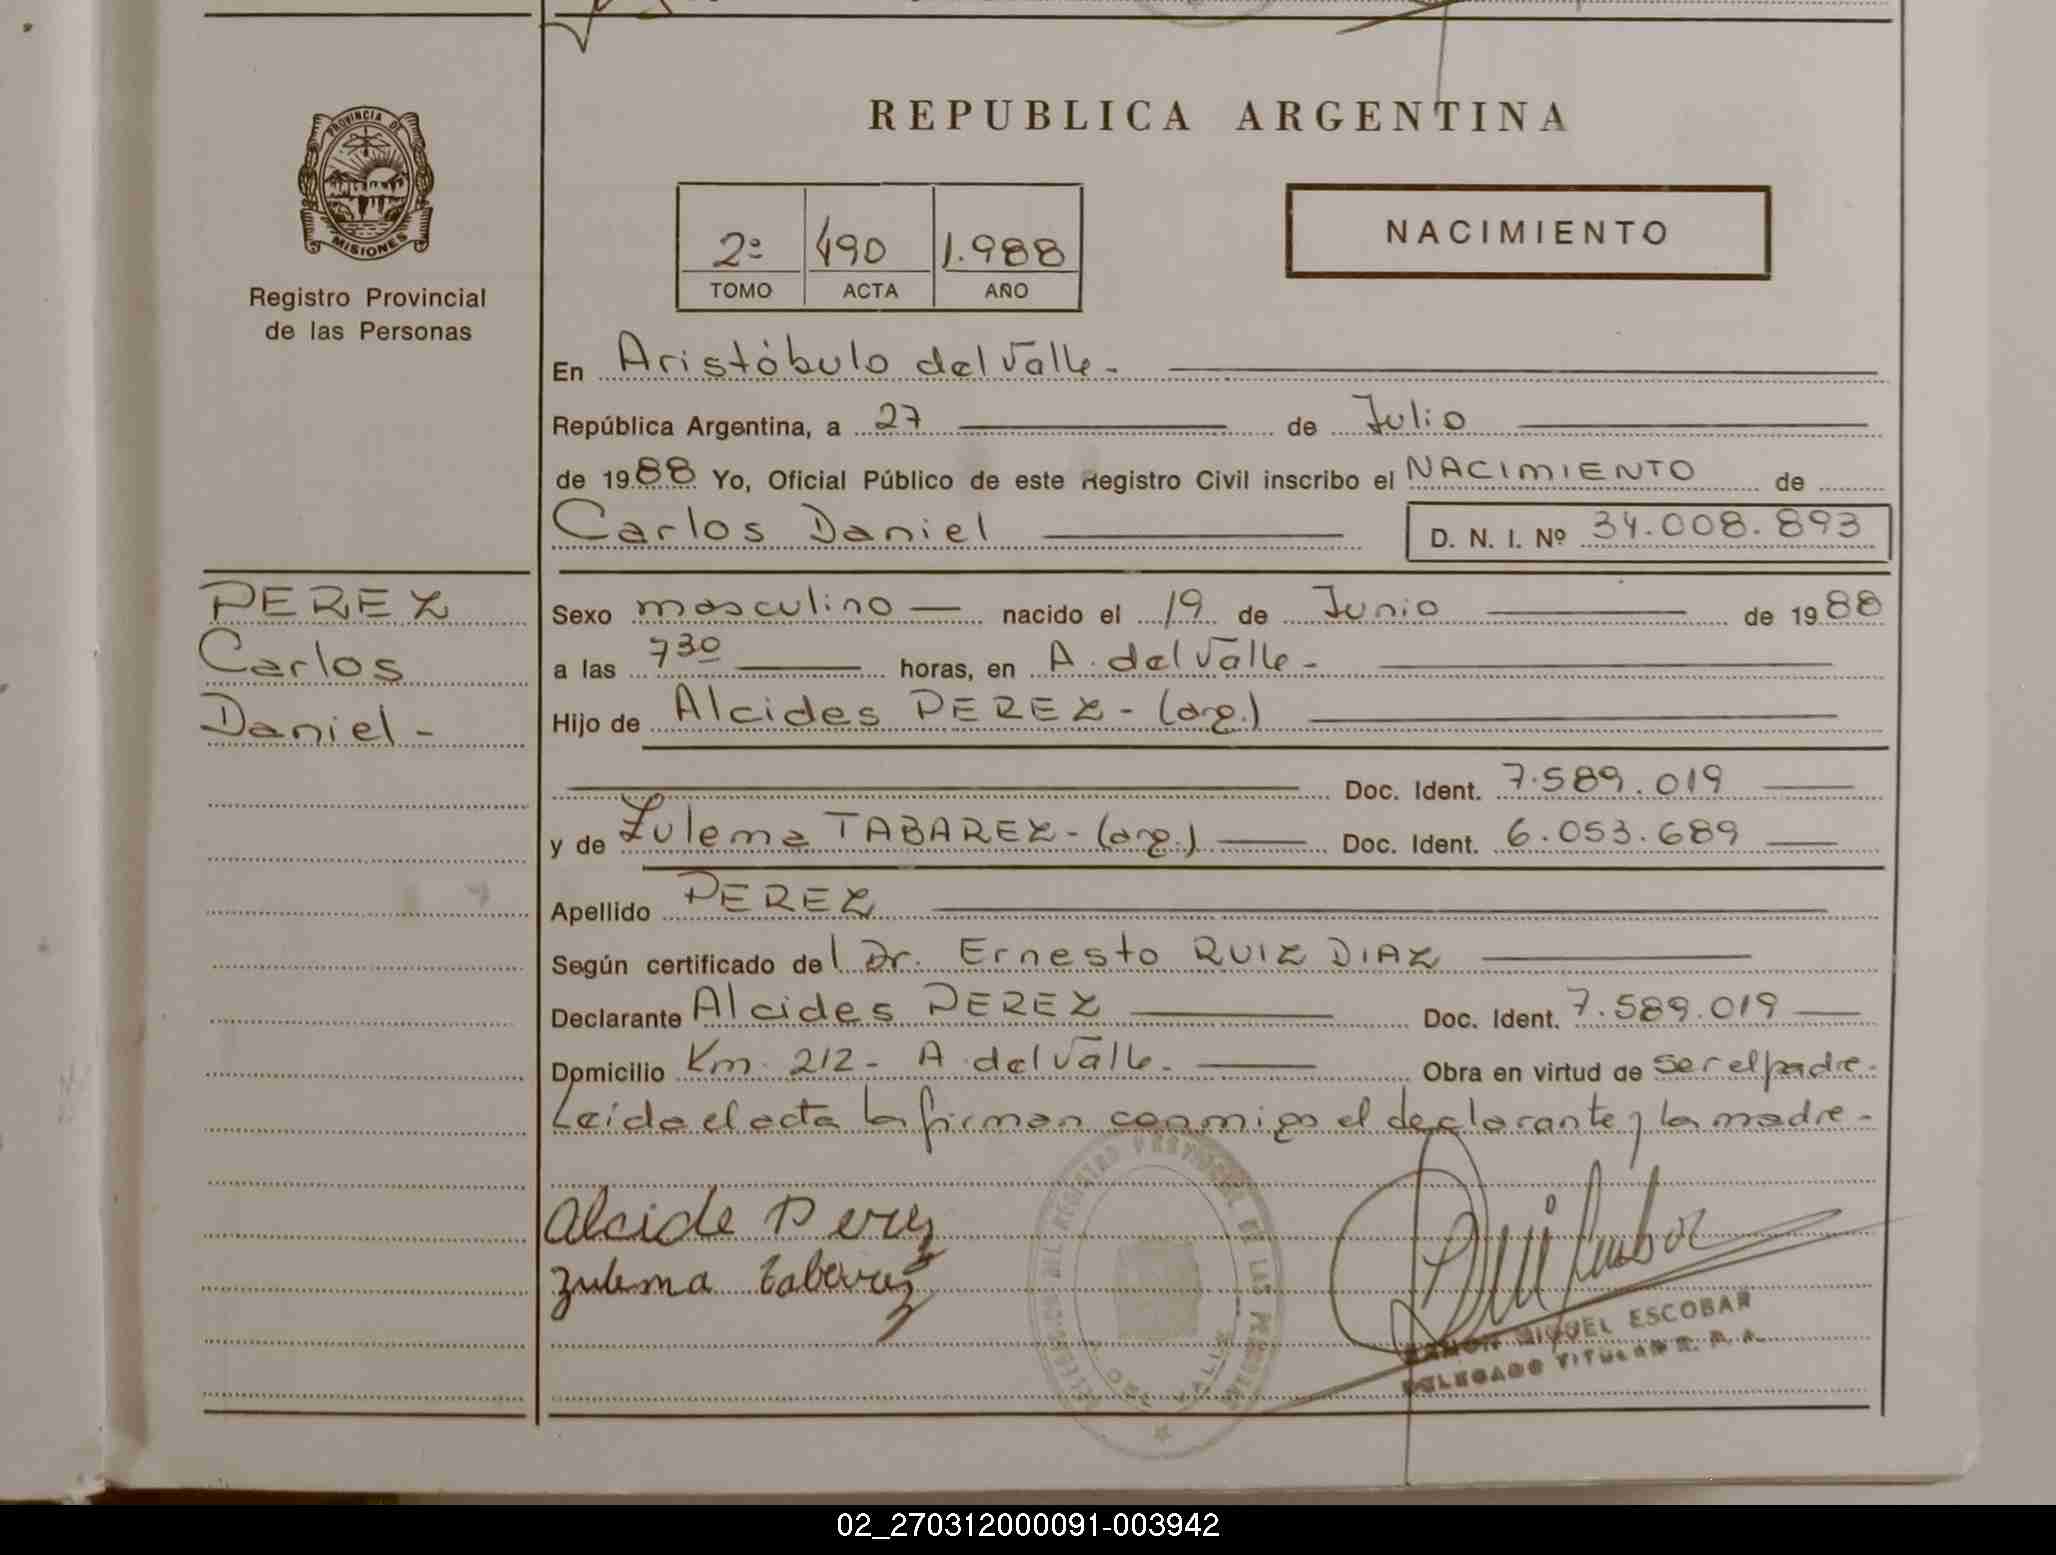 PROVINCIA DE
MISIONES
Registro Provincial
de las Personas
REPUBLICA ARGENTINA
2º 490 1.988
TOMO ACTA AÑO
NACIMIENTO
En Aristóbulo del Valle.-
República Argentina, a 27 de Julio
de 1988 Yo, Oficial Público de este Registro Civil inscribo el NACIMIENTO de
Carlos Daniel D. N. I. Nº 34.008.893
PEREZ
Carlos
Daniel-
Sexo masculino nacido el 19 de Junio de 1988
a las 7 30 horas, en A. del Valle-
Hijo de Alcides PEREZ - (arg.)
Doc. Ident. 7.589.019
y de Zulema TABAREZ - (arg.) Doc. Ident. 6.053.689
Apellido PEREZ
Según certificado del Dr. Ernesto RUIZ DIAZ
Declarante Alcides PEREZ Doc. Ident. 7.589.019
Domicilio Km. 212 - A. del Valle. Obra en virtud de ser el padre.
Leida el acta la firman conmigo el declarante y la madre-
Alcide Perez
Zulema Taberez
REGISTRO PROVINCIAL DE LAS PERSONAS
A. DEL VALLE
RAMON MIGUEL ESCOBAR
DELEGADO TITULAR R. P.
02_270312000091-003942